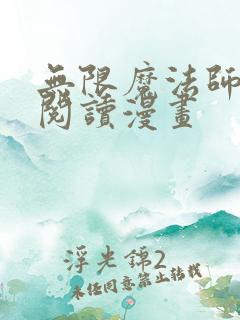 無限魔法師
閱讀漫畫
浮光錦2
未經同意禁止轉載